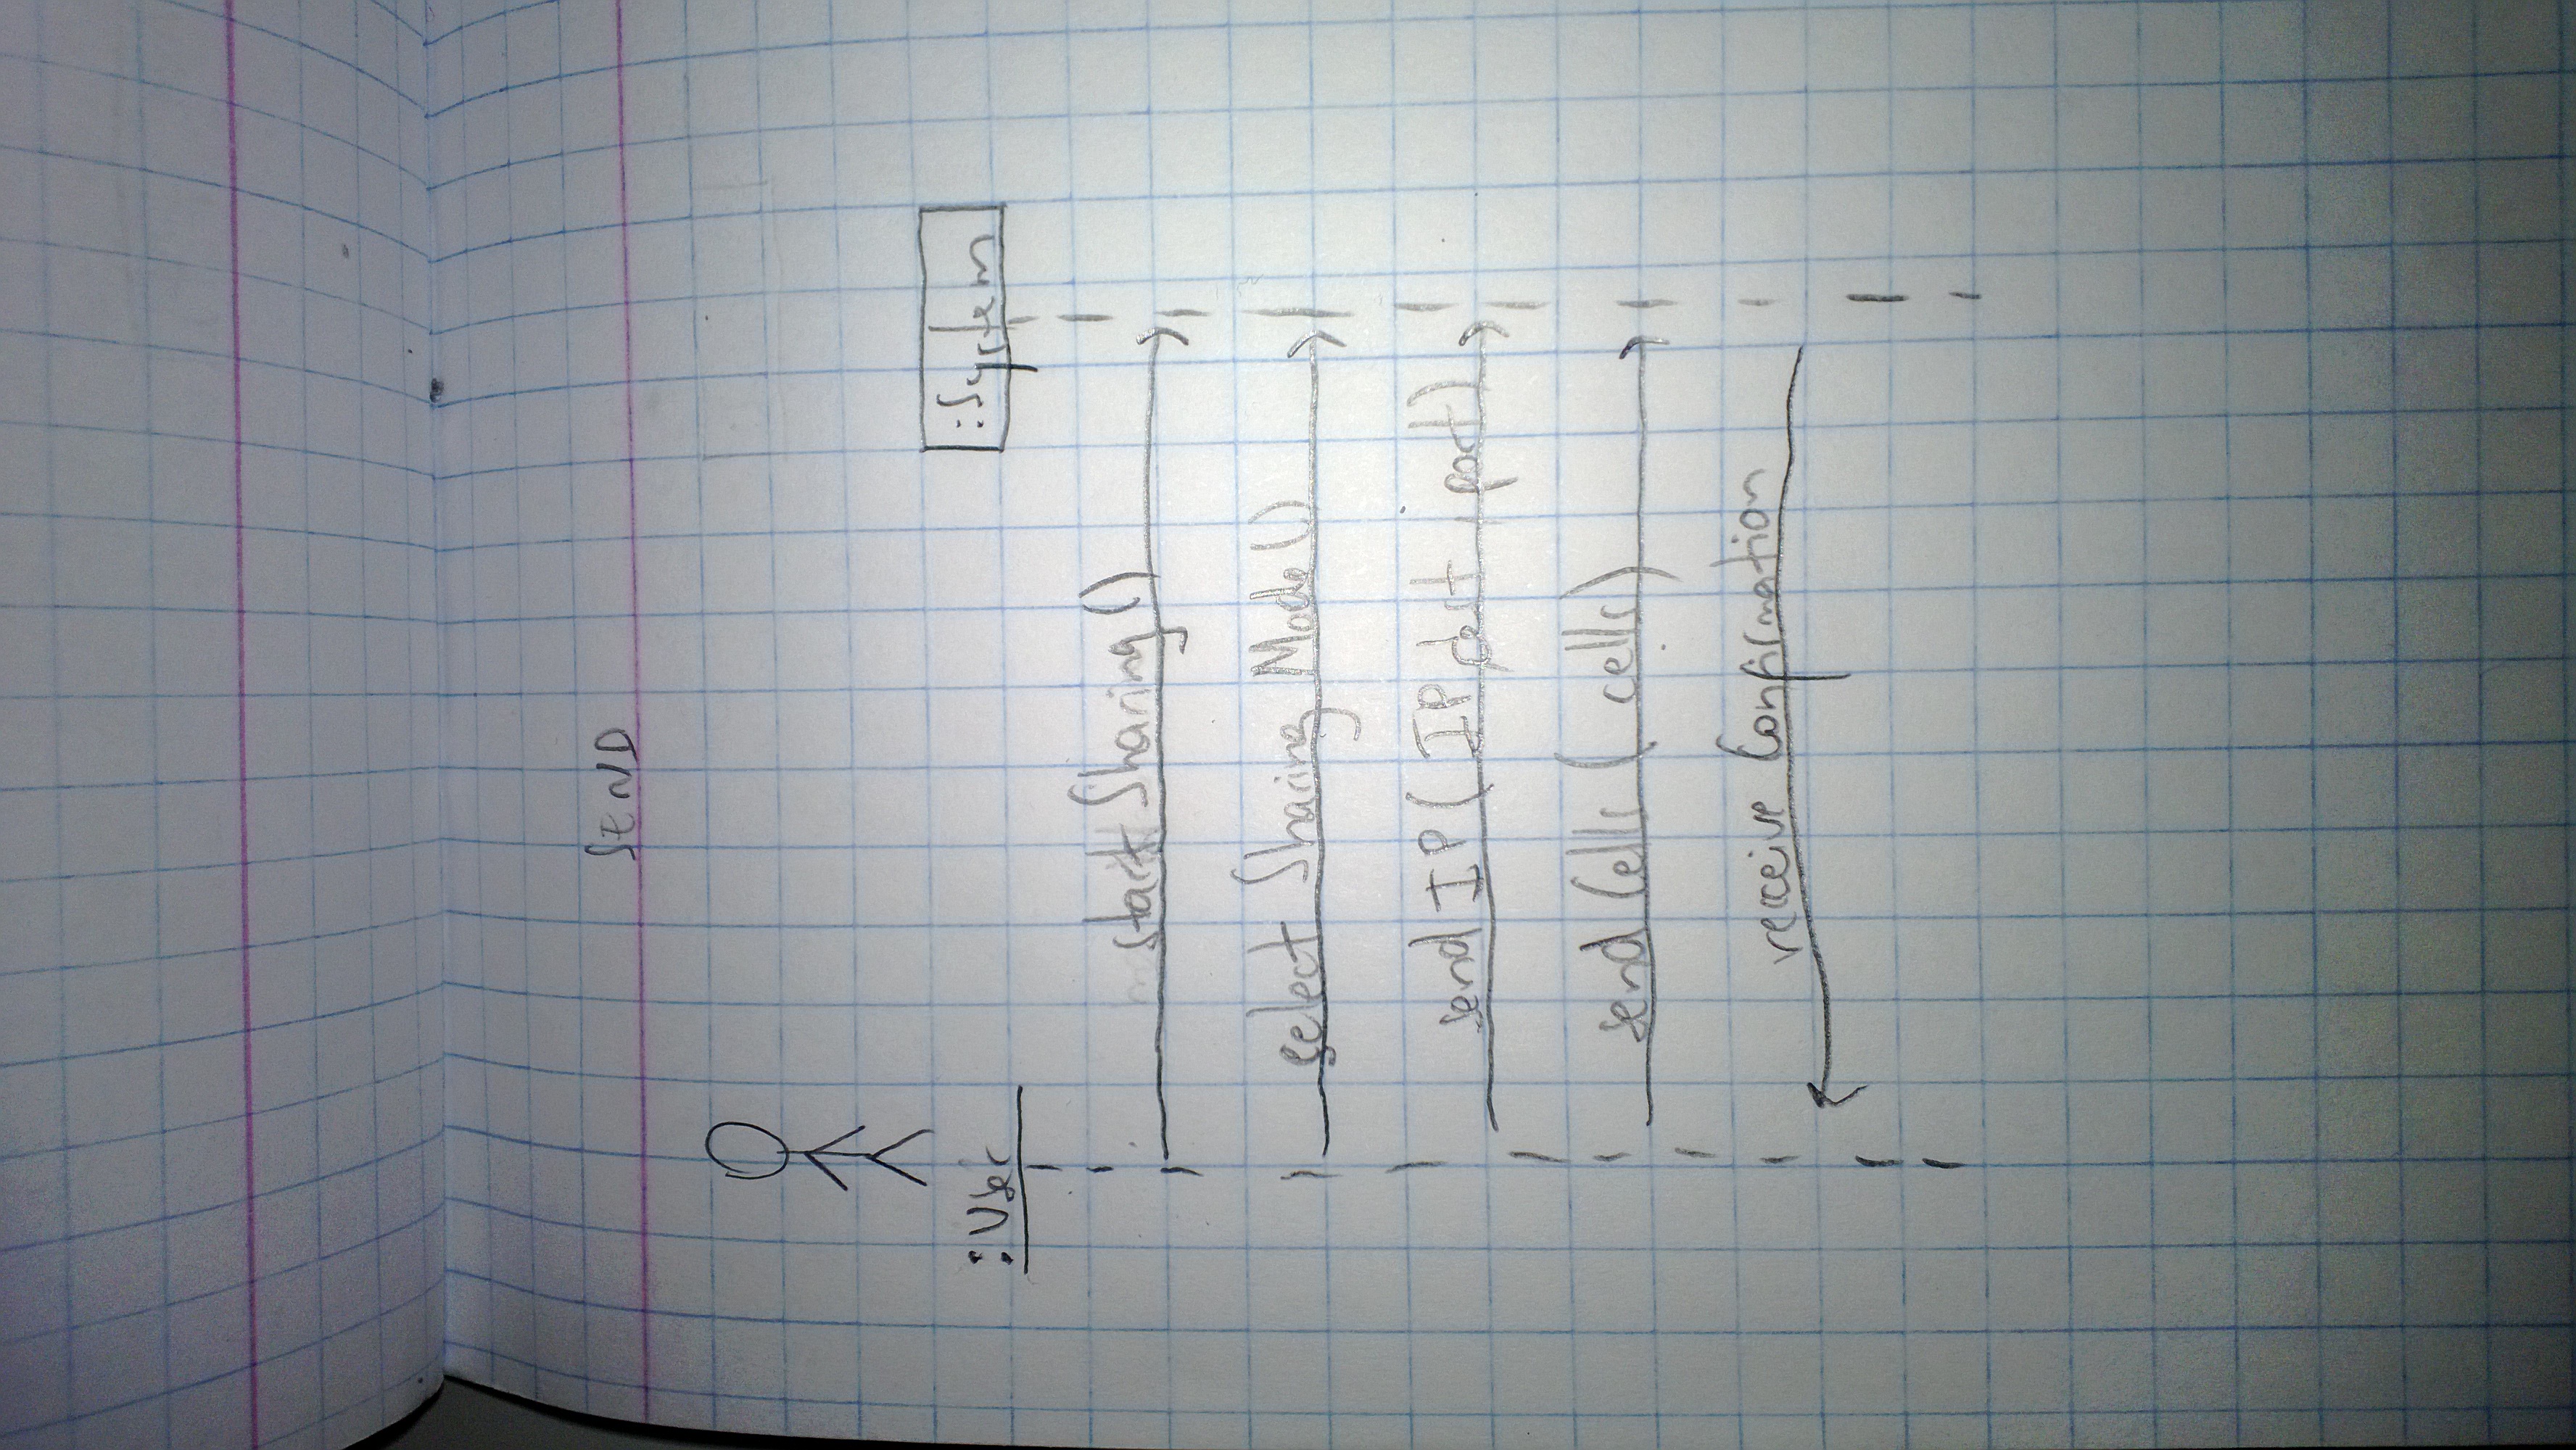 SEND
:User
:System
start Sharing()
select Sharing Mode()
send IP ( IP dest, port)
send Cells ( cells)
receive Confirmation